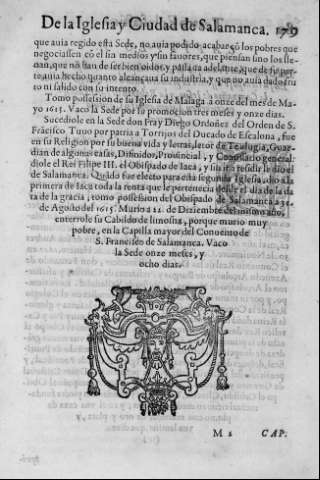 De la Iglesia y Ciudad de Salamanca. 179
que auia regido esta Sede, no auia podido acabar cõ los pobres que
negociassen cõ el sin medios y sin fauores, que piensan sino los lle-
uan, que no han de ser bien oidos, y passaua adelante, que de su par-
te auia hecho quanto alcançaua su industria, y que no auia dado fru
to ni salido con su intento.
Tomo possession de su Iglesia de Malaga à onze del mes de Ma-
yo 1615. Vaco la Sede por su promocion tres meses y onze dias.
Sucediole en la Sede don Fray Diego Ordoñez del Orden de S.
Frãcisco Tuuo por patria a Torrijos del Ducado de Escalona, fue
en su Religion por su buena vida y letras, letor de Teulugia, Guar
dian de algunas casas, Difinidor, Prouincial, y Comissario general:
diole el Rei Filipe III. el Obispado de Iaca, y sin ir a residir le dio el
de Salamanca. Quãdo fue electo para esta segunda Iglesia, dio a la
primera de Iaca toda la renta que le pertenecia desde el dia de la da
ta de la gracia, tomo possession del Obispado de Salamanca a 30.
de Agosto del 1615. Murio a 22. de Diziembre del mismo año,
enterrole su Cabildo de limosna, porque murio muy
pobre, en la Capilla mayor del Conuento de
S. Francisco de Salamanca. Vaco
la Sede onze meses, y
ocho dias.
M 2 CAP.